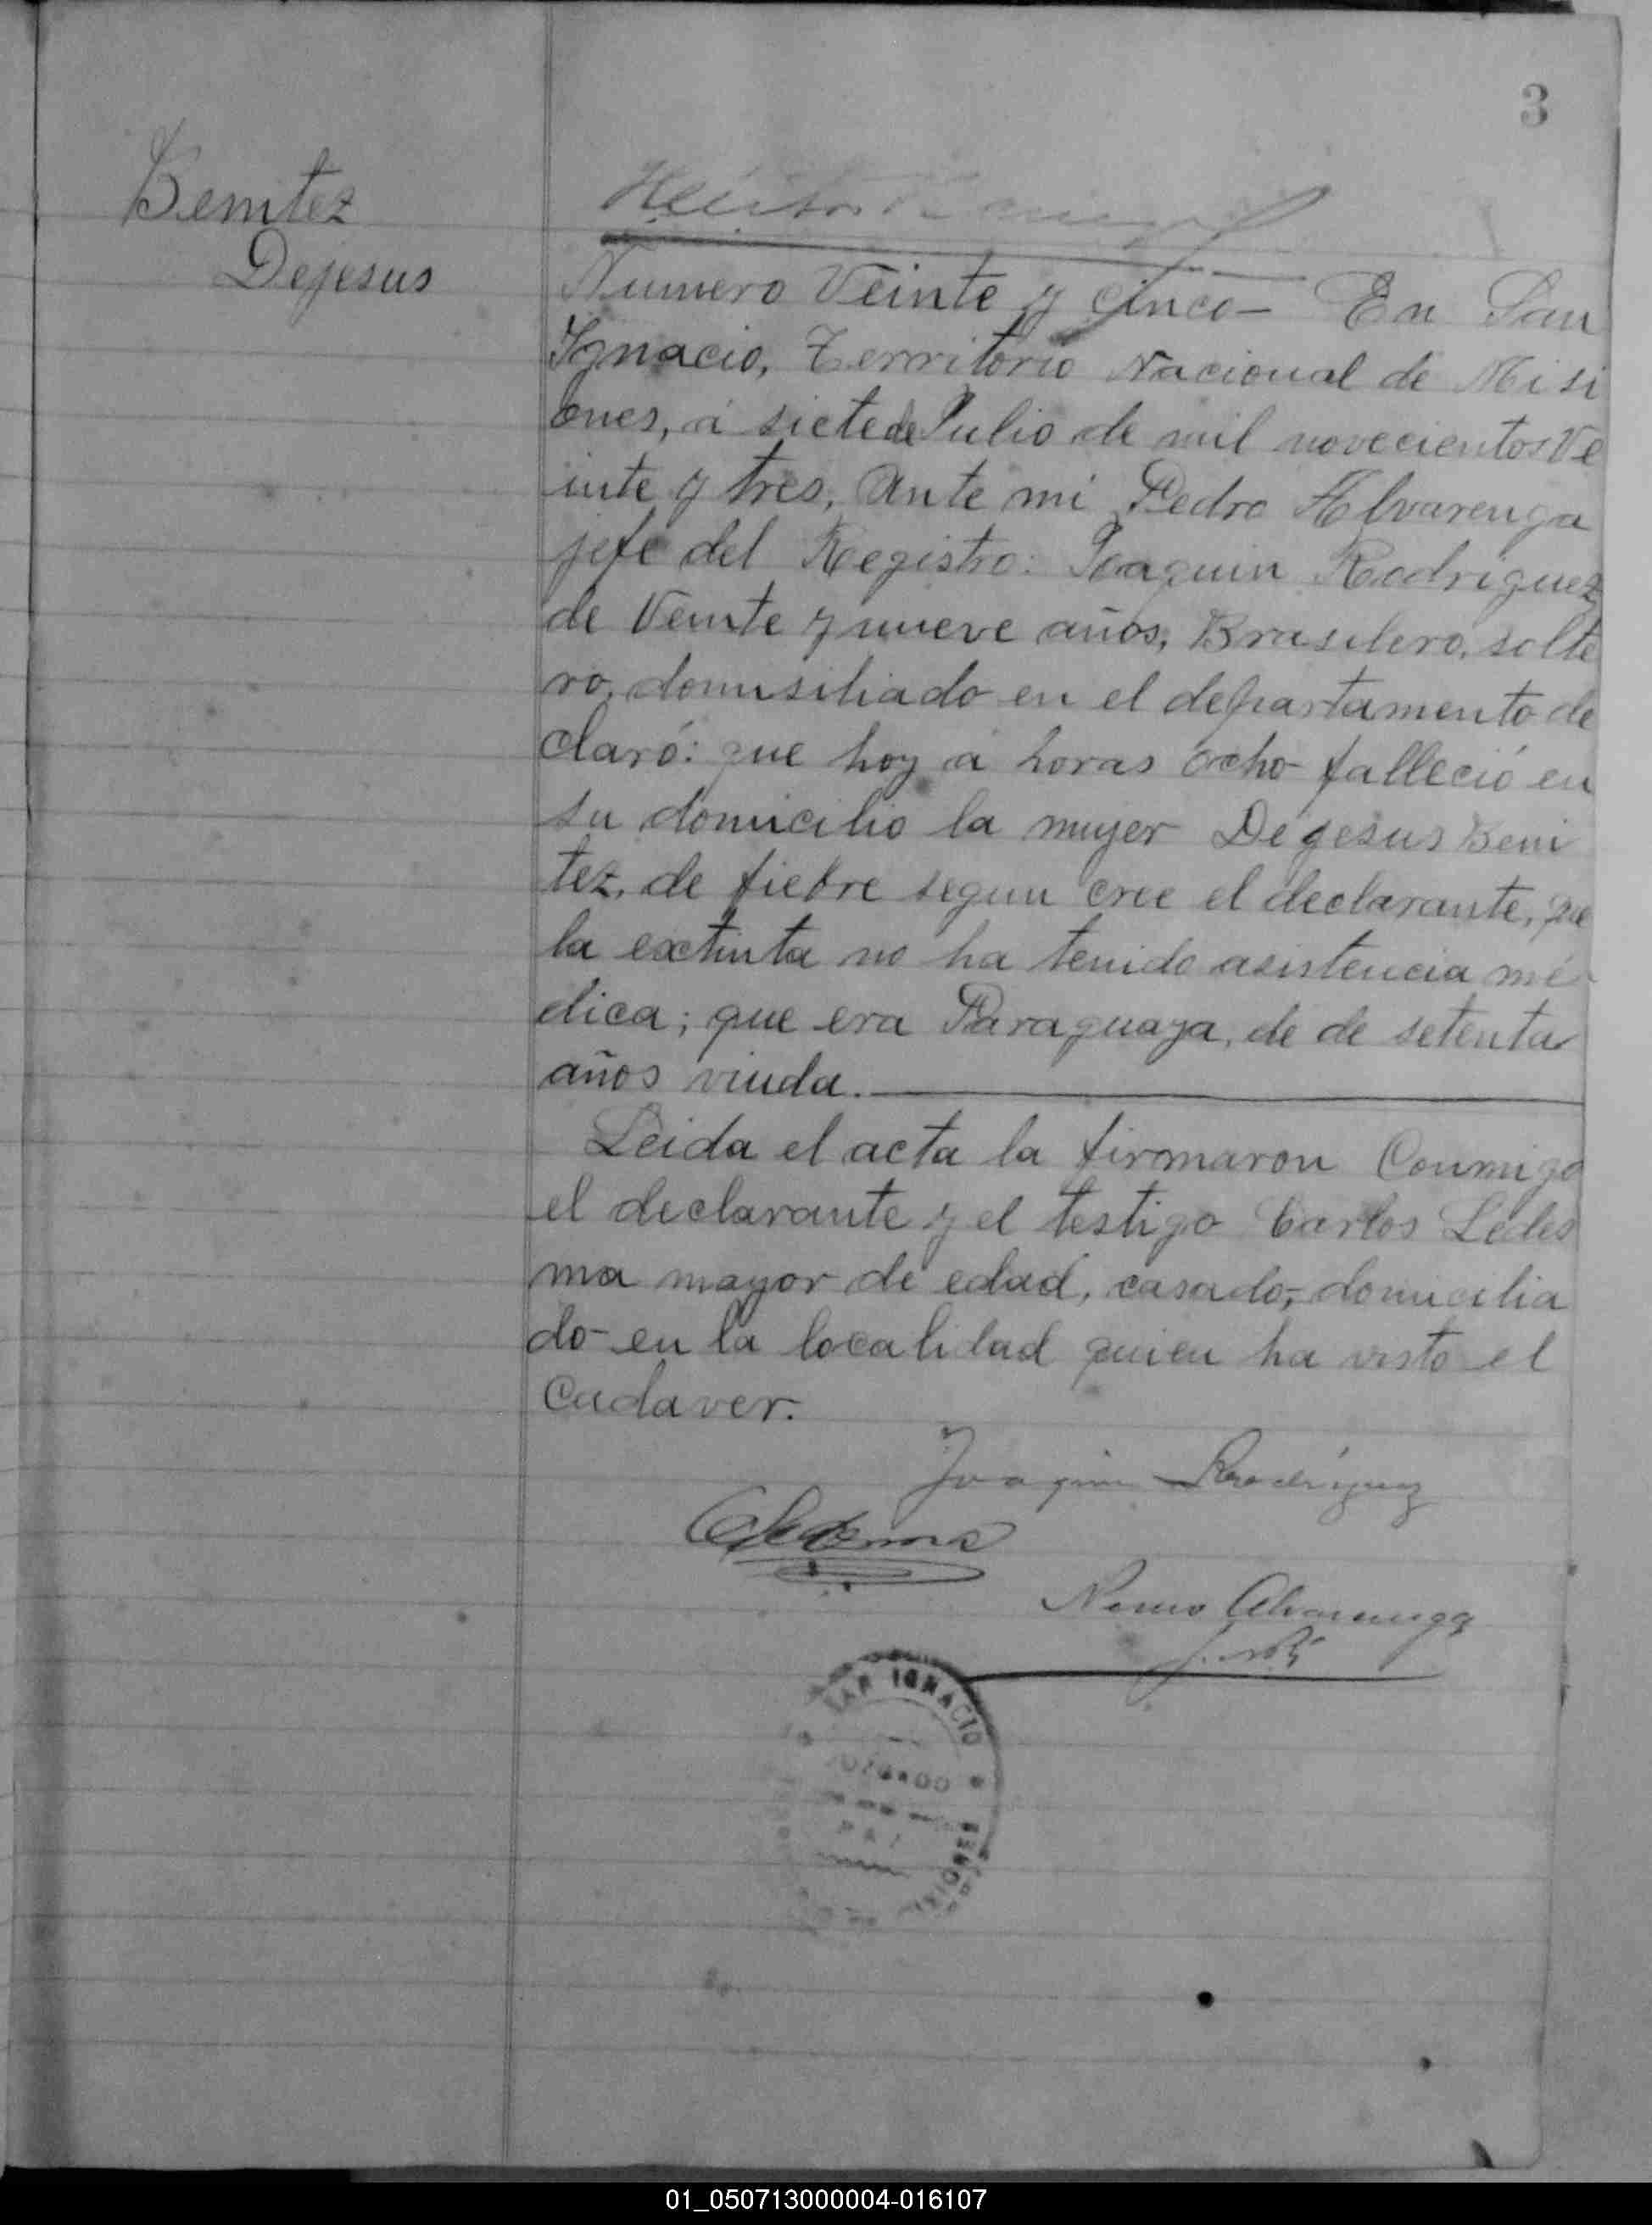 3
Benitez
Dejesus
Numero Veinte y cinco- En San
Ignacio, Territorio Nacional de Misi
ones, á siete de Julio de mil novecientos Ve
inte y tres, Ante mi Pedro Alvarenga
jefe del Registro: Joaquin Rodriguez
de Veinte y nueve años, Brasilero, solte
ro, domisiliado en el departamento de
claró: que hoy á horas ocho falleció en
su domicilio la mujer Dejesus Beni
tez, de fiebre segun cree el declarante, que
la extinta no ha tenido asistencia mé
dica; que era Paraguaya, de de setenta
años viuda.
Leida el acta la firmaron Conmigo
el declarante y el testigo Carlos Ledes
ma mayor de edad, casado, domicilia
do en la localidad quien ha visto el
Cadaver.
Joaquin Rodriguez
CLedesma
Alvarenga
SAN IGNACIO
MISIONES
01_050713000004-016107